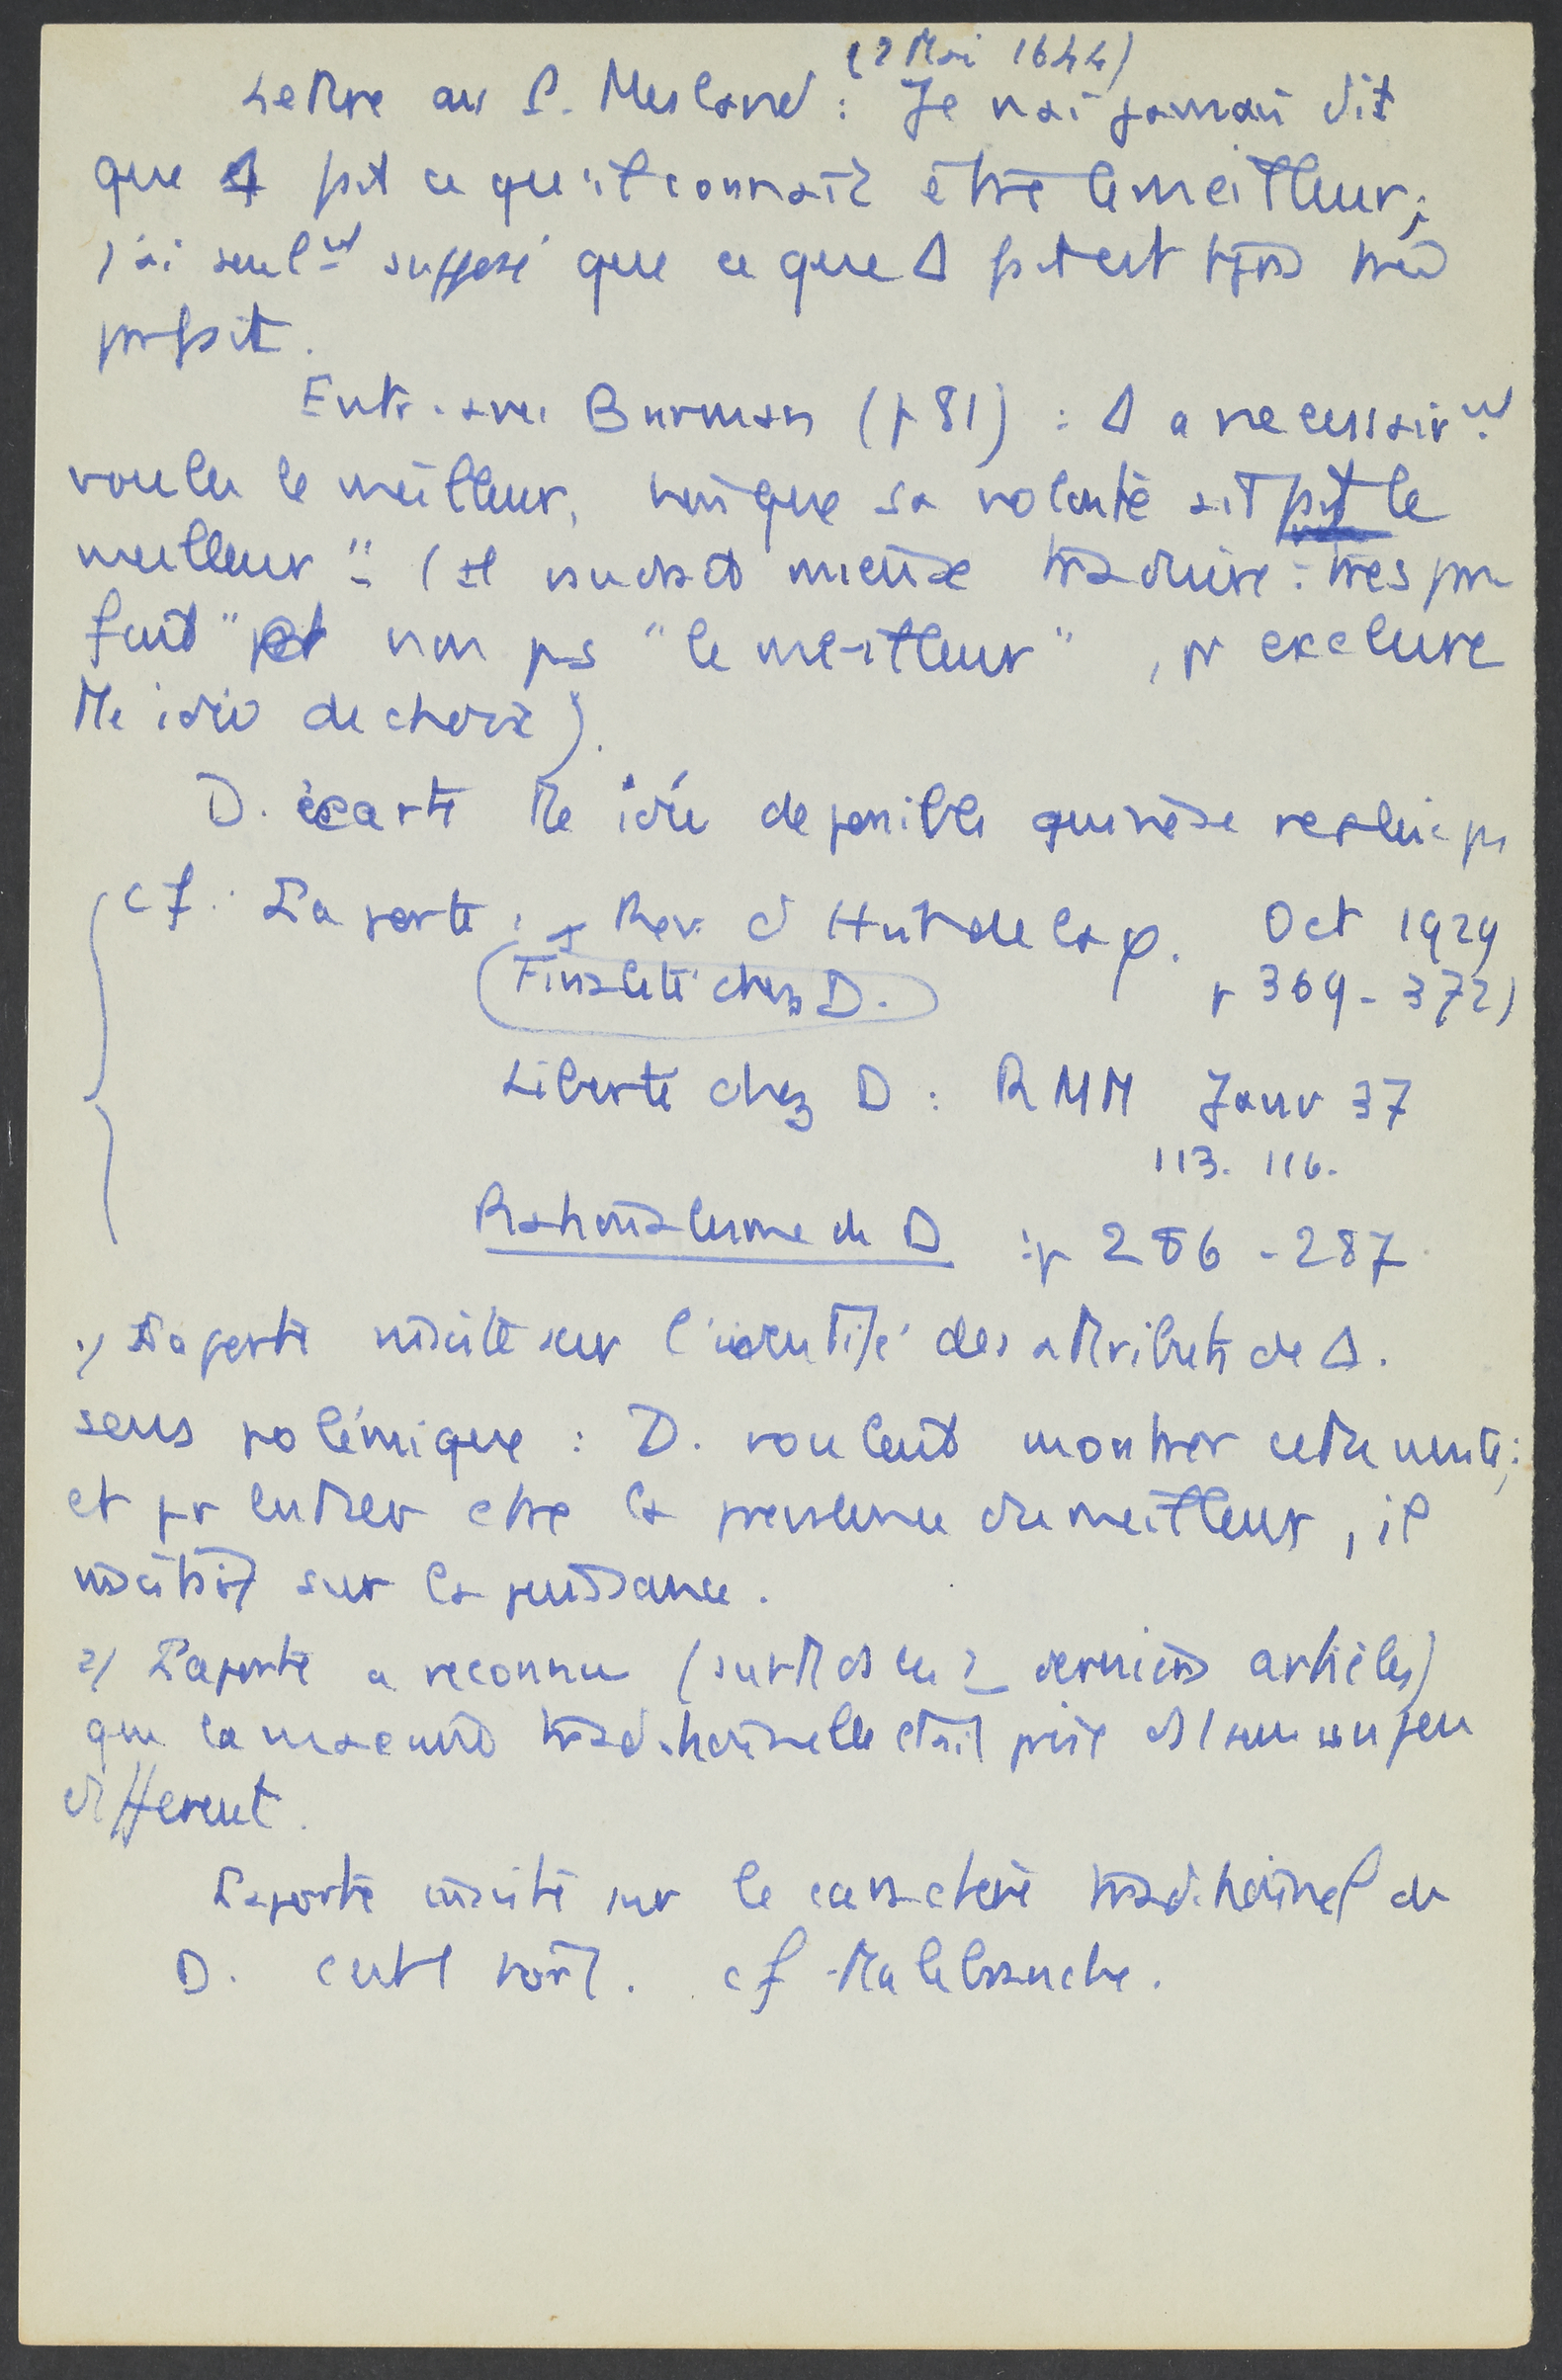 (2 Mai 1644)
Lettre au P. Mesland : Je n'ai jamais dit
que Δ fait ce qu'il connaît être le meilleur ;
j'ai seul^nt supposé que ce que Δ fait est tjrs très
parfait.
Entr. avec Burman (p 81) : Δ a necessair^nt
voulu le meilleur, bien que sa volonté ait fait le
meilleur " (il vaudrait mieux traduire : très par
fait " et non pas "le meilleur" , pr exclure
tte idée de choix).
D. écarte tte idée de possibles qui ne se réalise pas
cf. Laporte : Rev. d'Hist de la φ. Oct 1929
Finalité chez D. p 369 - 372)
Liberté chez D : RMM Janv 37
113. 116.
Rationalisme de D : p 286 - 287
1) Laporte insiste sur l'identité des attributs de Δ.
sens polémique : D. voulait montrer cette unité ;
et pr lutter ctre la prescience du meilleur, il
insistait sur la puissance.
2) Laporte a reconnu (surtt ds les 2 derniers articles)
que la maxime traditionnelle était prise ds 1 sens un peu
différent.
Laporte insiste sur le caractère traditionnel de
D. c'est 1 tort. cf Malebranche.